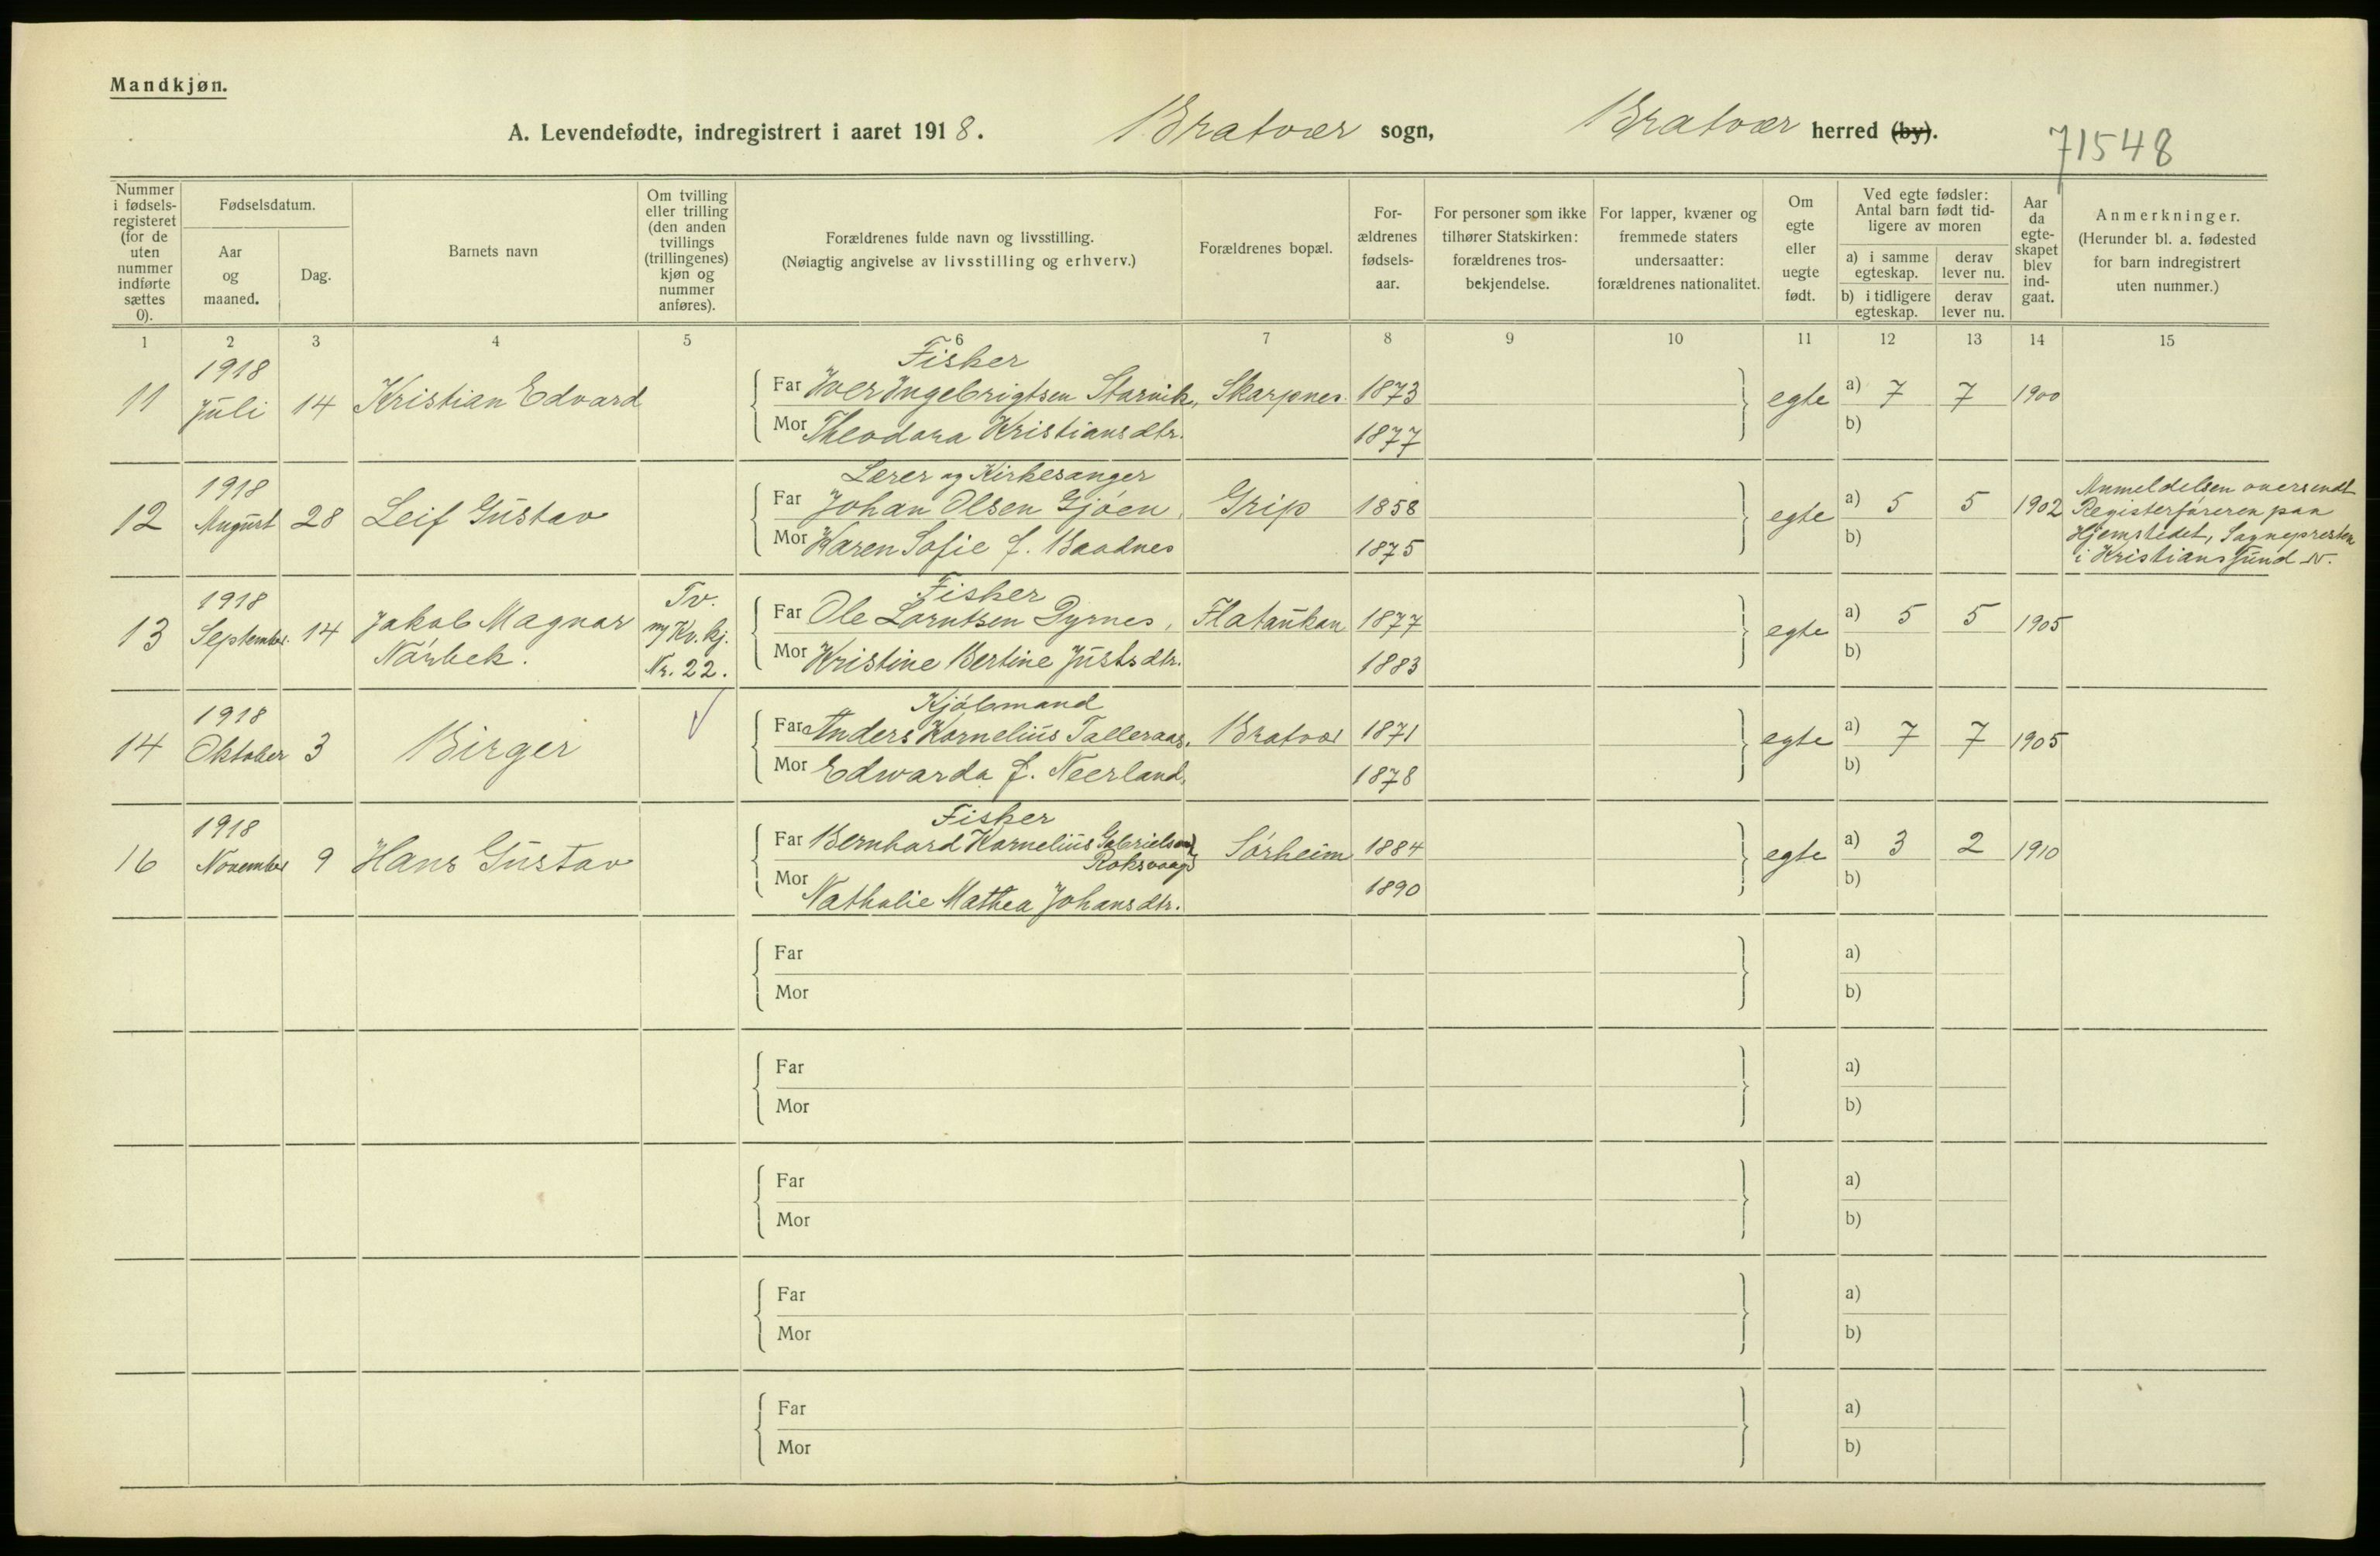 Mandkjøn.
A. Levendefødte, indregistrert i aaret 1918. Bratvær sogn, Bratvær herred (by).
71548
Nummer i fødsels-registeret (for de uten nummer indførte sættes 0).
Fødselsdatum.
Aar og maaned.
Dag.
Barnets navn
Om tvilling eller trilling (den anden tvillings (trillingenes) kjøn og nummer anføres).
Forældrenes fulde navn og livsstilling.
(Nøiagtig angivelse av livsstilling og erhverv.)
Forældrenes bopæl.
For-ældrenes fødsels-aar.
For personer som ikke tilhører Statskirken: forældrenes tros-bekjendelse.
For lapper, kvæner og fremmede staters undersaatter: forældrenes nationalitet.
Om egte eller uegte født.
Ved egte fødsler: Antal barn født tid-ligere av moren
a) i samme egteskap.
derav lever nu.
b) i tidligere egteskap.
derav lever nu.
Aar da egte-skapet blev ind-gaat.
Anmerkninger.
(Herunder bl. a. fødested for barn indregistrert uten nummer.)
1 2 3 4 5 6 7 8 9 10 11 12 13 14 15
1918 Fisker
11 Juli 14 Kristian Edvard Far Iver Ingebrigtsen Starvik, Skarpnes. 1873 egte a) 7 7 1900
Mor Theodora Kristiansdtr. 1877 b)
1918 Lærer og Kirkesanger
12 August 28 Leif Gustav Far Johan Olsen Gjøen, Grip 1858 egte a) 5 5 1902
Mor Karen Sofie f. Baadnes 1875 b)
Anmeldelsen oversendt
Registerføreren paa
Hjemstedet, Sognepresten
i Kristiansund N.
1918 Tv. Fisker
13 September 14 Jakob Magnar m/Kv. kj. Far Ole Lorntsen Dyrnes, Flataukan 1877 egte a) 5 5 1905
Norbek. Nr. 22. Mor Kristine Bertine Justsdtr. 1883 b)
1918 Kjøbmand
14 Oktober 3 Birger Far Anders Kornelius Talleraas, Bratvær 1871 egte a) 7 7 1905
Mor Edwarda f. Neerland, 1878 b)
1918 Fisker
16 November 9 Hans Gustav Far Bernhard Kornelius Gabrielsen Sørheim 1884 egte a) 3 2 1910
Roksvaag
Mor Nathalie Mathea Johansdtr. 1890 b)
Far a)
Mor b)
Far a)
Mor b)
Far a)
Mor b)
Far a)
Mor b)
Far a)
Mor b)